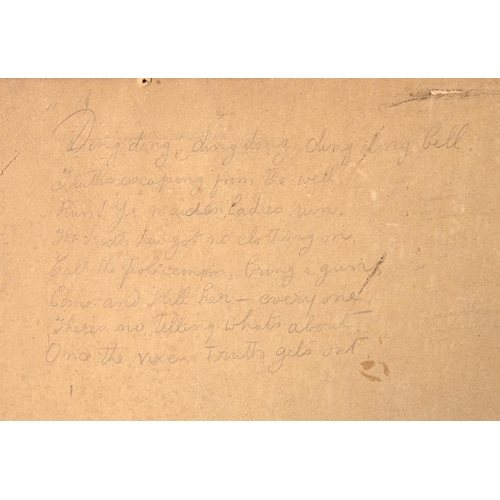 "Ding dong, ding dong, ding dong bell.
Truth's escaping from the well.
Run! Ye maiden ladies, run,
The truth has got no clothing on,
Call the policeman, bring a gun,
Come and kill her — everyone,
There's no telling what's about
Once the vixen Truth gets out